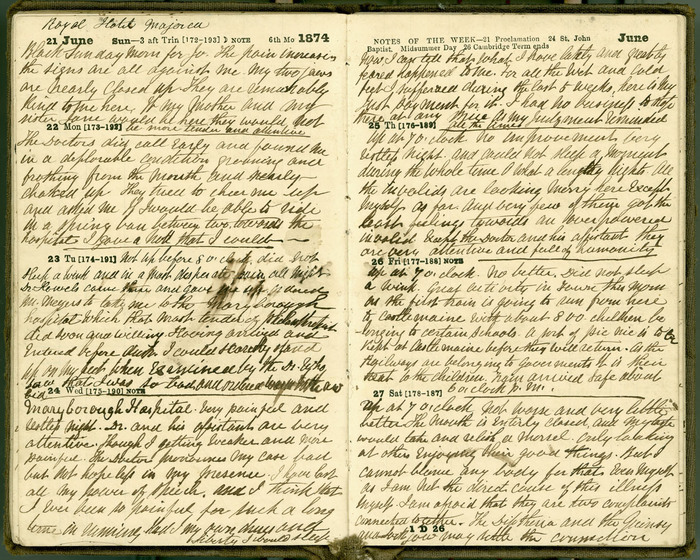 Royal Hotel Majorca
21 June Sun—3 aft Trin [172-193] ☽ NOTE 6th Mo 1874
Black Sunday Morn for Jo. The pain increases
the signs are all against me. My two Jaws
are nearly closed up They are remarkably
kind to me here, if my Mother and my
sister Jane would be here they would not
be more tender and attentive
22 Mon [173-192]
The Doctors did call Early and found me
in a deplorable condition groaning and
frothing from the Mouth and nearly
choked up They tried to cheer me up
and asked me if I would be able to ride
in a spring van between two towards the
hospital I gave a Nod that I could
23 Tu [174-191] Not up before 8 o clock, did not
sleep a wink and in a Most desperate pain all Night
Dr Lewels came and gave me up
Mr Meyers to take me to the Maryborough
hospital which that Most tender
did soon and willing. Having arrived and
Entered before dark I could scarcely stand
up on my feet when Examined by the Dr
saw that I was so bad and ordered
bed
24 Wed [175-190] NOTE
Maryborough Hospital. Very painful and
restless night. Dr. and his assistants are very
attentive though I getting weaker and more
painful. The Doctor pronounces My case bad
but not hopeless in my presence. I have lost
all my power of speech, and I think that
I Ever been so painful for such a long
time
liberty I would sleep
NOTES OF THE WEEK—21 Proclamation 24 St. John
Baptist. Midsummer Day 26 Cambridge Term ends
June
Now I can tell that what I have lately and greatly
feared happened to me. For all the Wet and Cold
feet I suffered during the last 5 weeks, here is My
Just payment for it. I had no business to stop
there at any Price as My judgment Commanded
all the times
25 Th [176-189]
up at 7 o. clock no improvement very
restless night and could not sleep a moment
during the whole time O what a lengthy Nights All
the invalids are looking merry here Except
Myself as far. And very few of them got the
least feelings towards an overpowered
invalid Except the Doctor and his assistant they
are very attentive and full of humanity
26 Fri [177-188] NOTE
up at 7 o. clock. No better. Did not sleep
a wink. Great activity in Town this Morn
as the first train is going to run from here
to Castlemaine with about 800 children be
longing to certain Schools a sort of pic nic is to be
kept at Castlemaine before they will return. As the
Railways are belonging to Governments it is their
treat to the children. train arrived safe about
6 o clock p. m.
27 Sat [178-187]
up at 7 o. clock Not worse and very little
better the Mouth is Entirely closed, and My taste
would take and relish a morsel. Only looking
at others Enjoying their good things. But I
cannot blame any body for that Even Myself
as I am Not the direct cause of this illness
Myself I am afraid that they are two complaints
connected together. The Diptheria and the Quinsy
and lock jaw may settle the connection
1 D 26